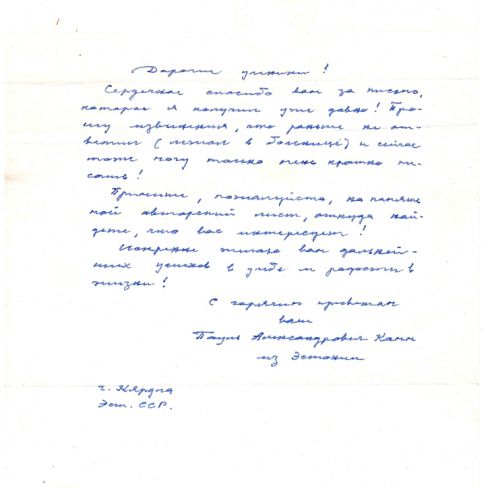 Дорогие ученики!
Сердечное спасибо вам за письмо,
которое я получил уже давно! Про-
шу извинения, что раньше не от-
ветил (лежал в больнице) и сейчас
тоже могу только очень кратко пи-
сать!
Примите, пожалуйста, на память
мой авторский лист, откуда най-
дете, что вас интересует!
Искренне желаю вам дальней-
ших успехов в учебе и радости в
жизни!
С горячим приветом
ваш
Пауль Александрович Канн
из Эстонии
г. Кярдла
Эст. ССР.